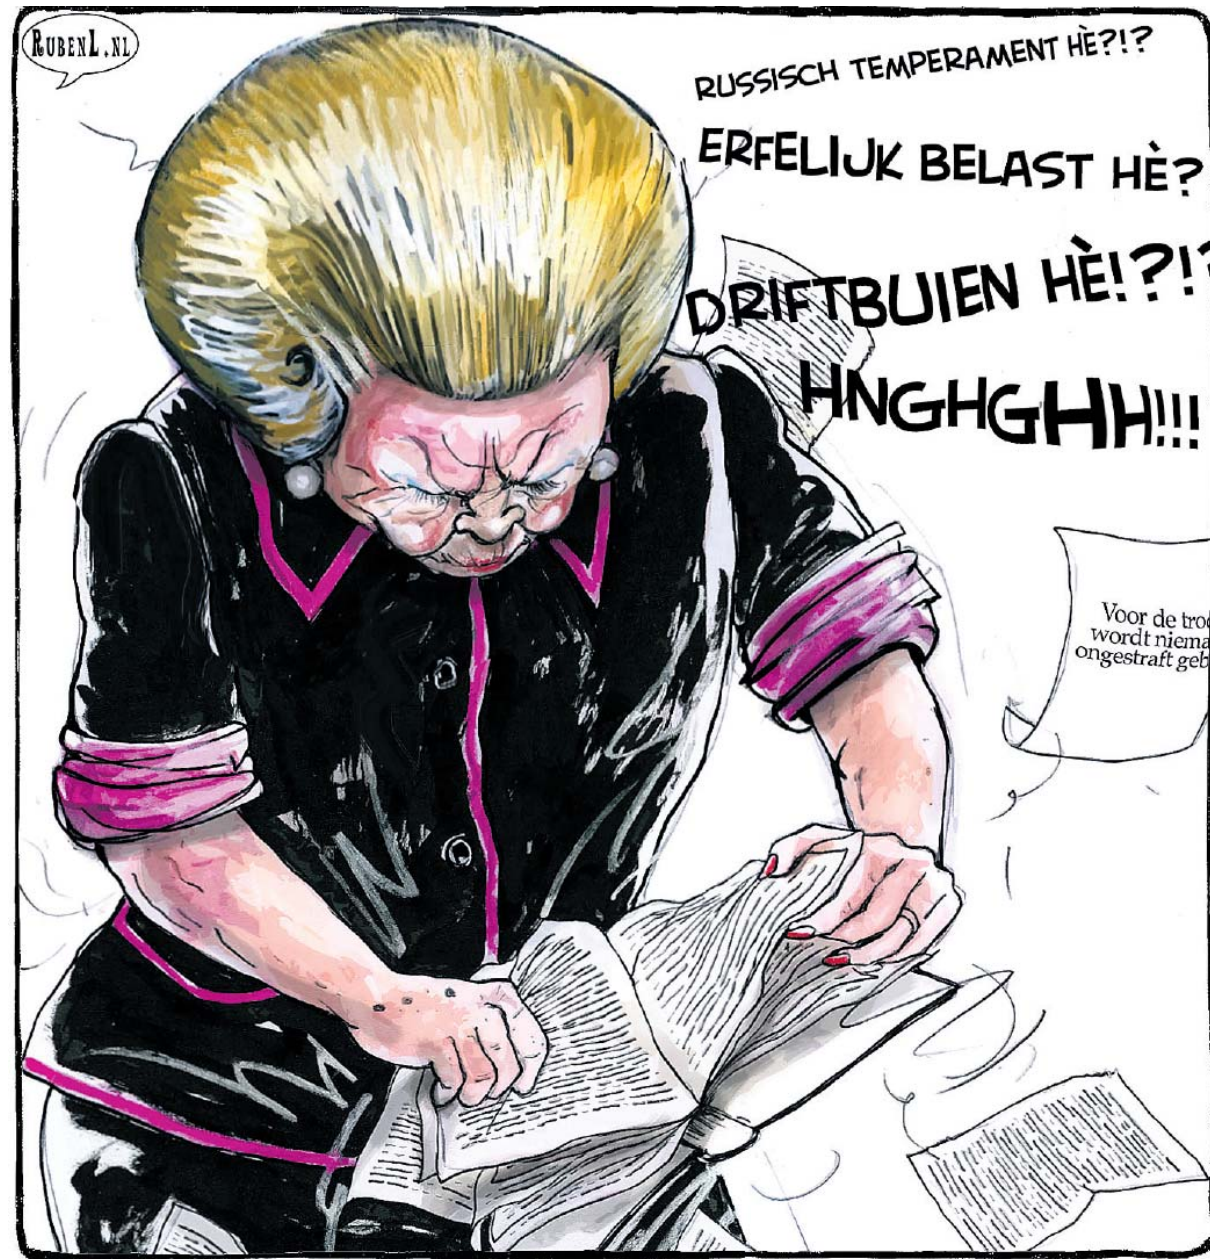 RUBENL.NL
RUSSISCH TEMPERAMENT HÈ?!?
ERFELIJK BELAST HÈ?
DRIFTBUIEN HÈ!?!?
HNGHGHH!!!
Voor de
wordt
ongestraft